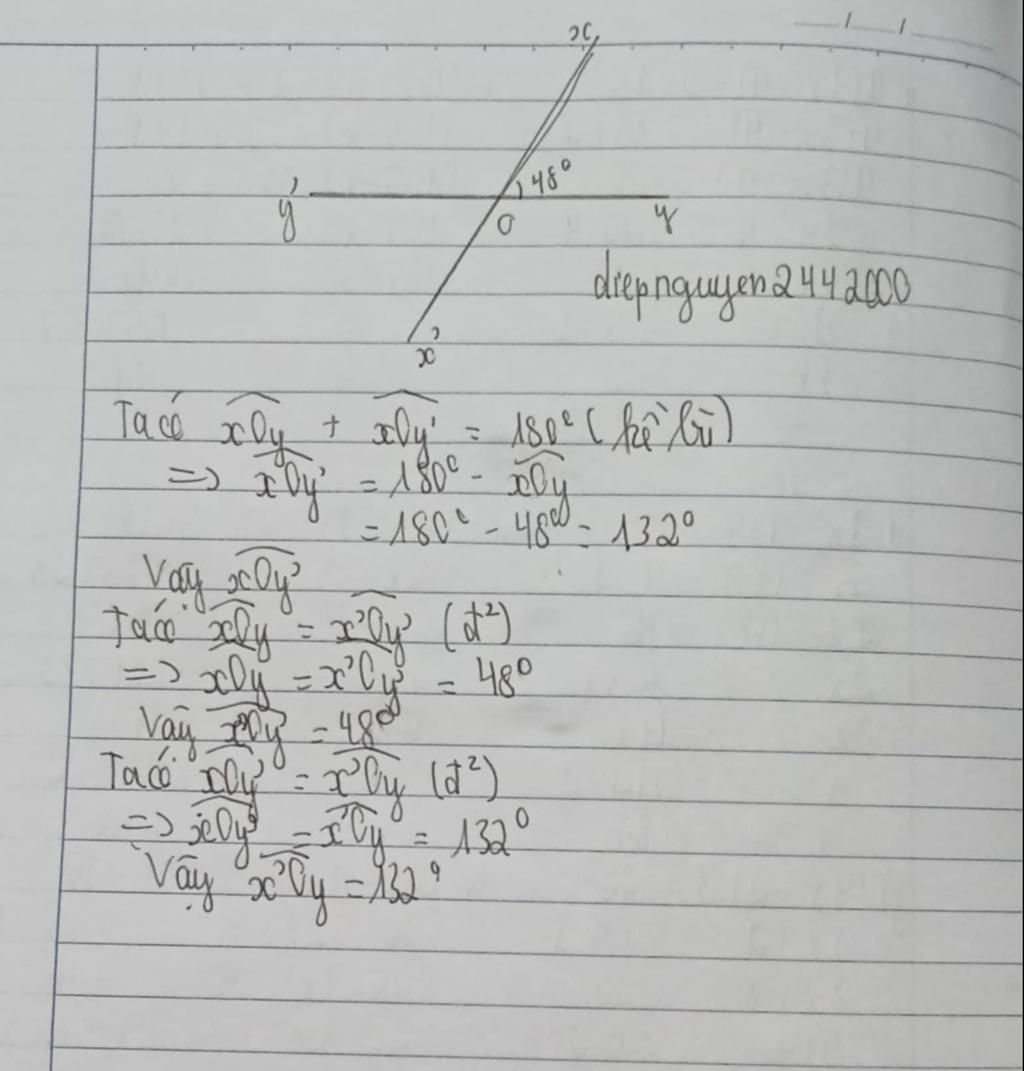 x
48°
y'
O
y
diepnguyen2442000
x'
Ta có xOy + xOy' = 180° (kề bù)
=> xOy' = 180° - xOy
= 180° - 48° = 132°
Vậy xOy'
Ta có xOy = x'Oy' (đ²)
=> xOy = x'Oy' = 48°
Vậy x'Oy' = 48°
Ta có xOy' = x'Oy (đ²)
=> xOy' = x'Oy = 132°
Vậy x'Oy = 132°